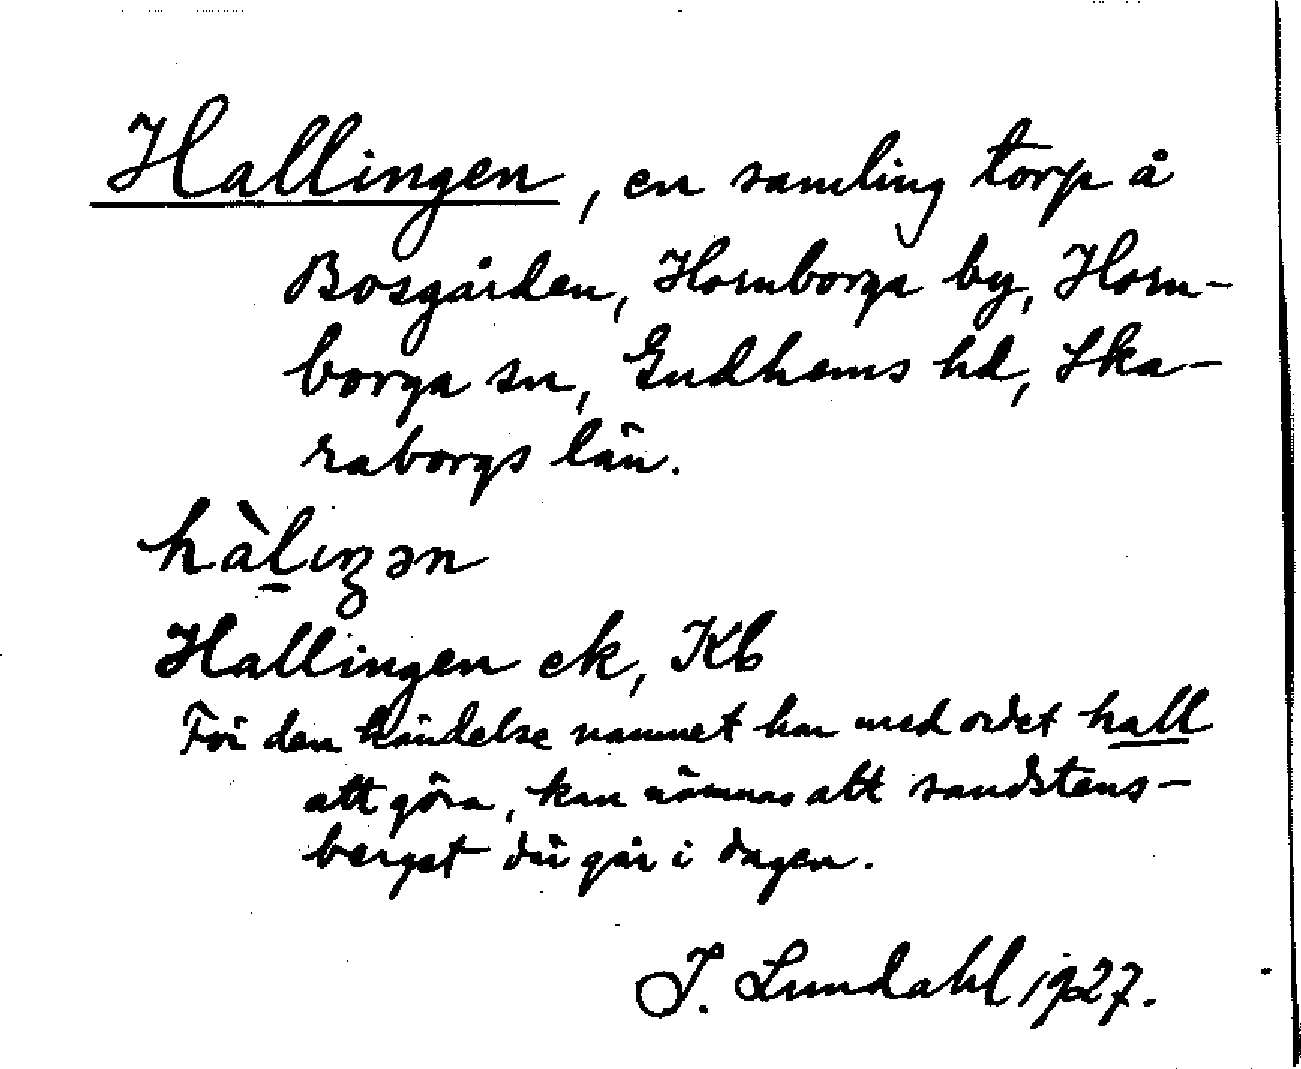 Hallingen, en samling torp å
Bosgården, Hornborga by, Horn-
borga sn, Gudhems hd, Ska-
raborgs län.
hàl̠ıŋən
Hallingen ek, Kb
För den händelse namnet har med ordet hall
att göra, kan nämnas att sandstens-
berget där går i dagen.
I. Lundahl 1927.